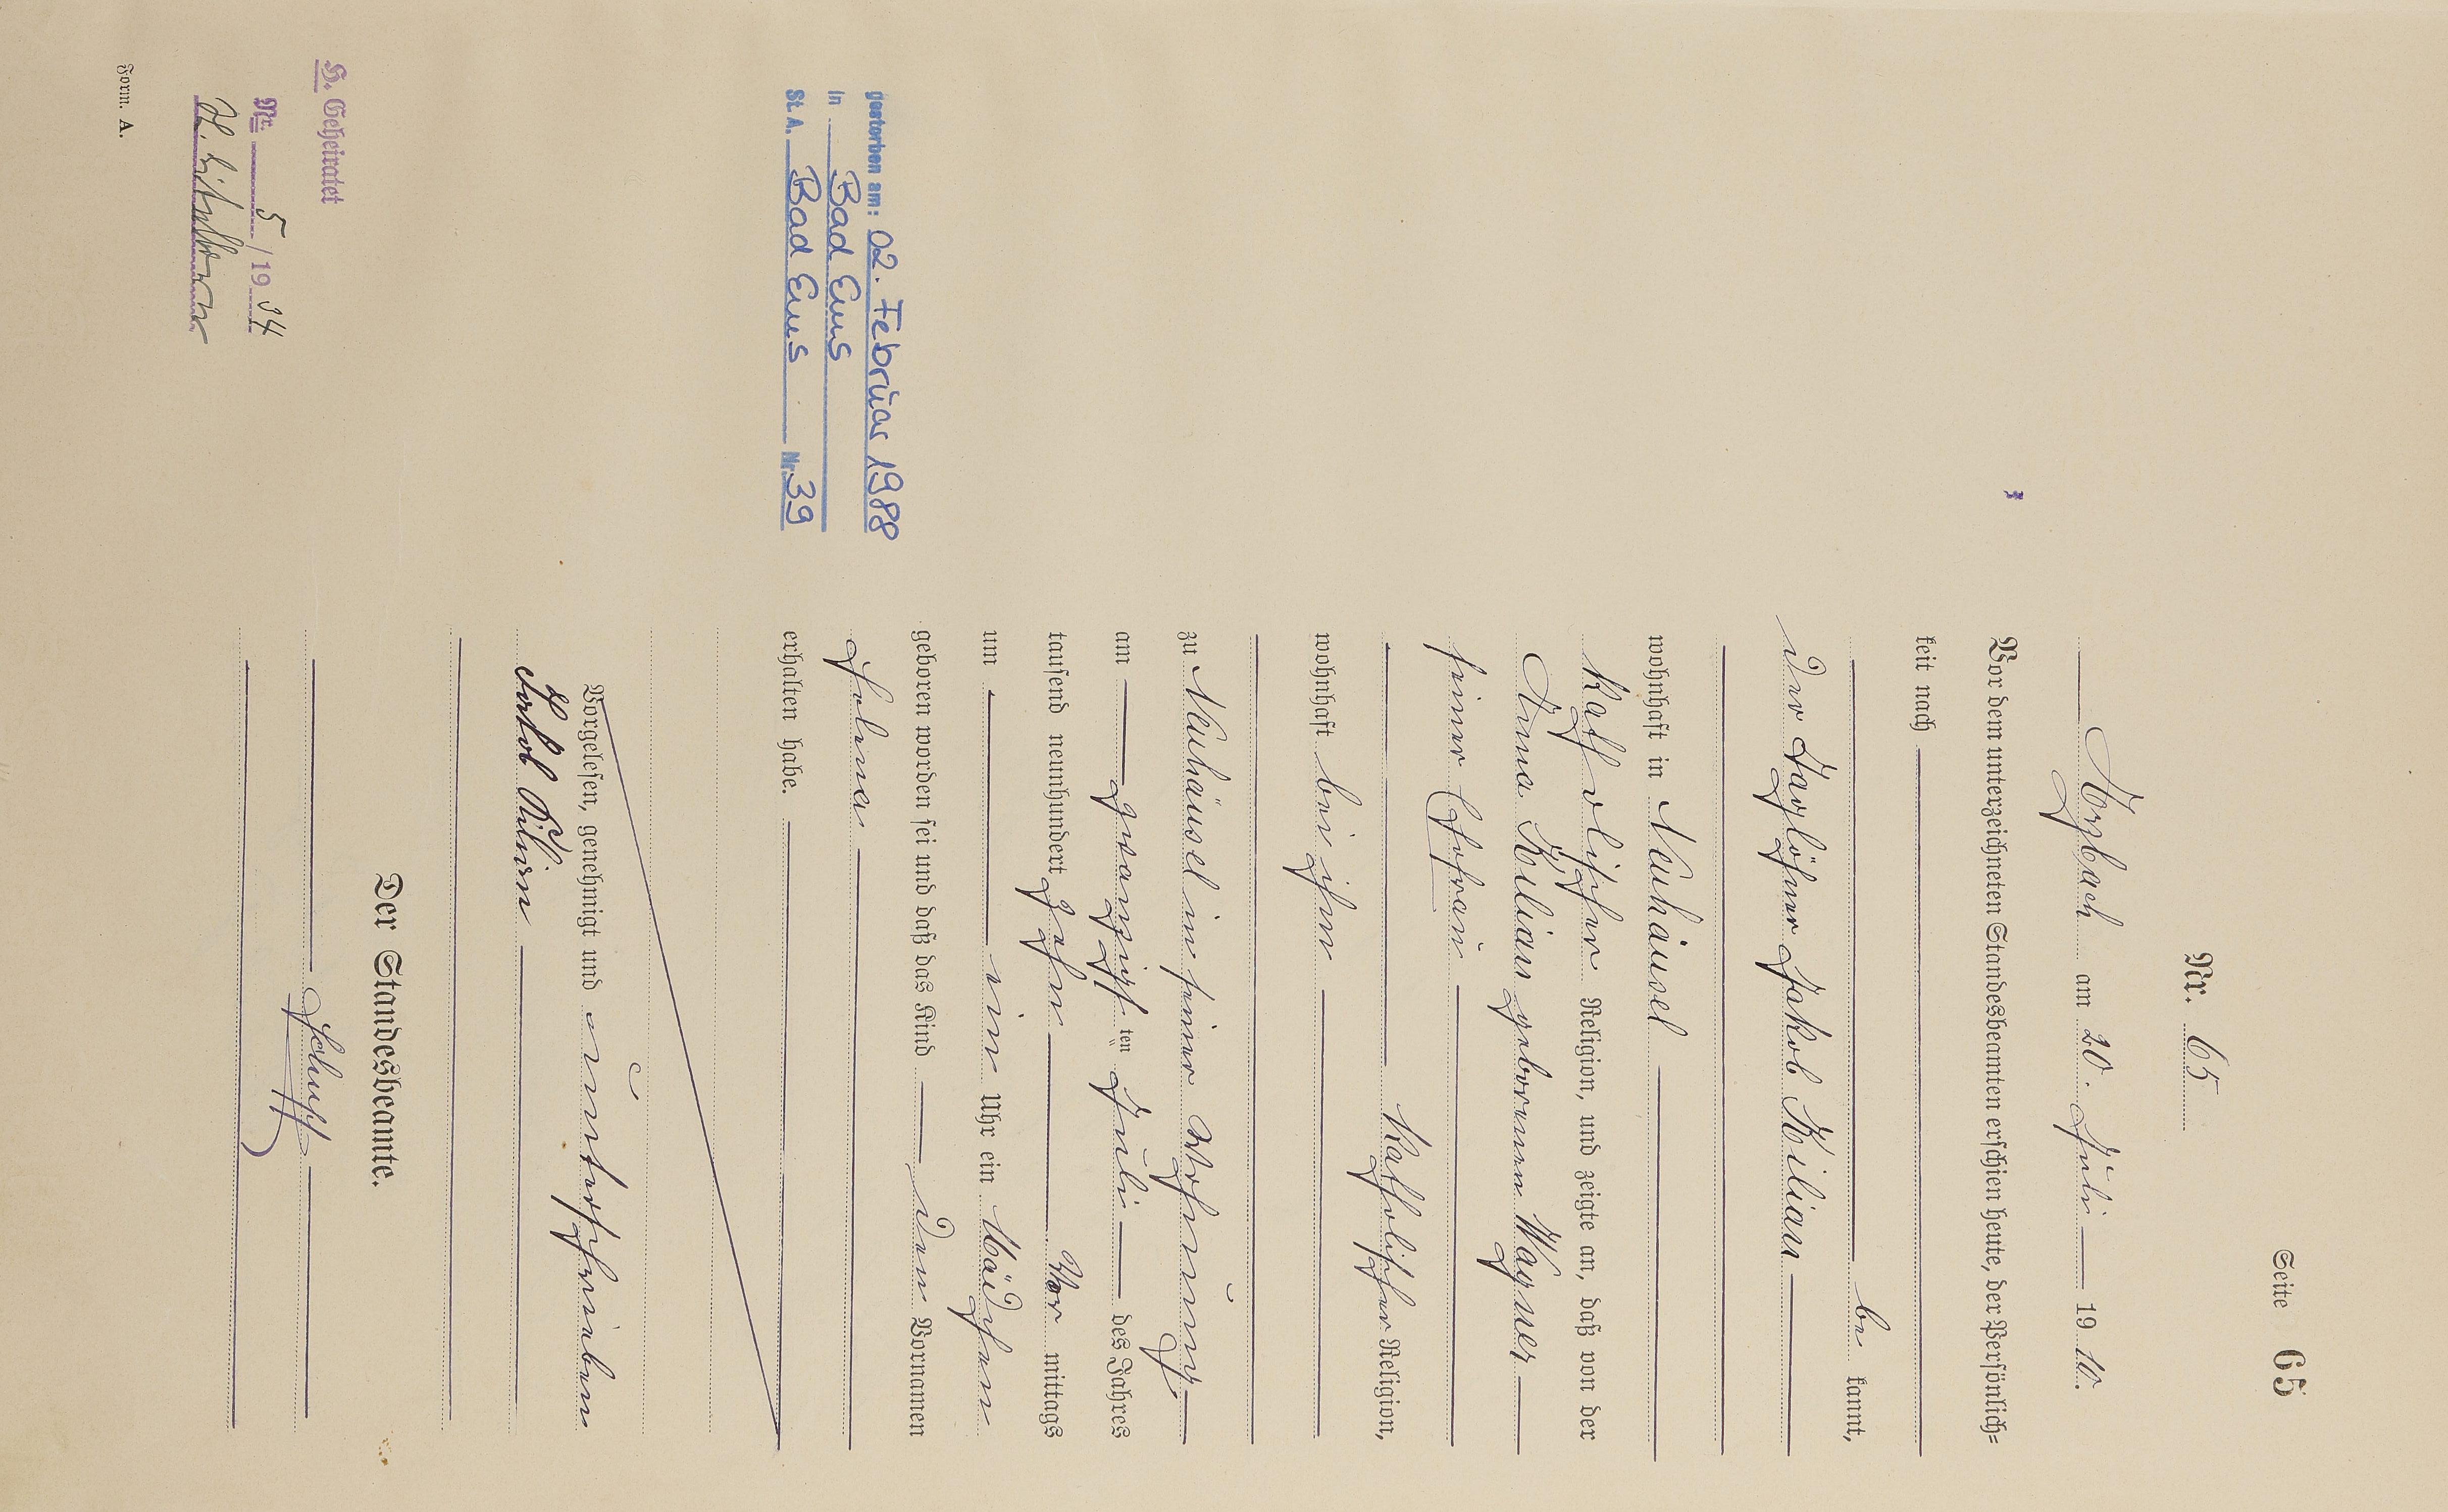 Seite 65
Nr. 65
Arzbach am 20. Juli 1910.
Vor dem unterzeichneten Standesbeamten erschien heute, der Persönlich-
keit nach
be kannt,
der Taglöhner Jakob Kilian
wohnhaft in Neuhäusel
katholischer Religion, und zeigte an, daß von der
Anna Kilian geborenen Wagner
seiner Ehefrau
katholischer Religion,
wohnhaft bei ihm
zu Neuhäusel in seiner Wohnung
am zwanzigsten Juli des Jahres
tausend neunhundert zehn Vor mittags
um ein Uhr ein Mädchen
geboren worden sei und daß das Kind den Vornamen
Helena
erhalten habe.
Vorgelesen, genehmigt und unterschrieben
Jakob Kilian
Der Standesbeamte.
gestorben am: 02. Februar 1988
in Bad Ems
St. A. Bad Ems Nr. 39
H. Geheiratet
Nr. 5/1934
Form. A.